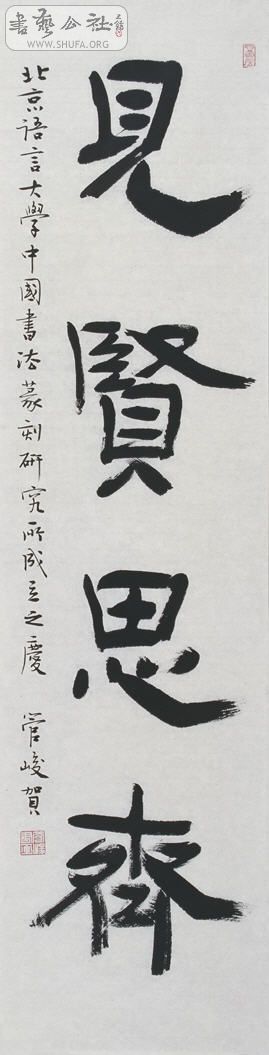 書藝公社
WWW.SHUFA.ORG
見賢思齊
北京語言大學中國書法篆刻研究所成立之慶
管峻賀